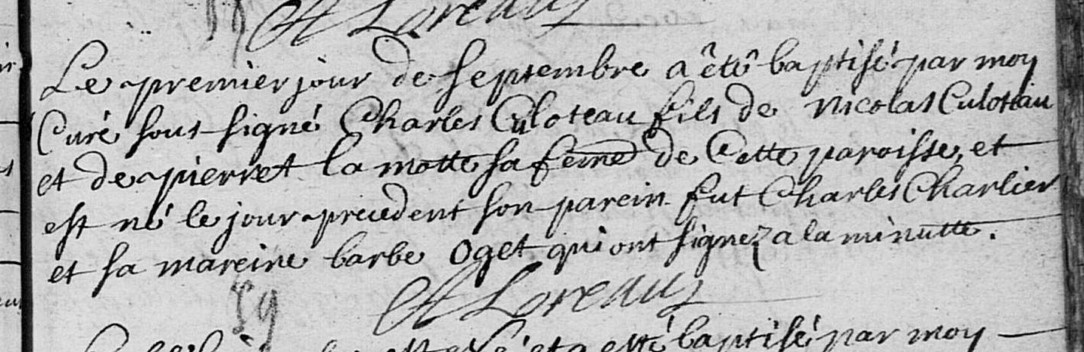 A Loreau
Le premier jour de septembre a êtê baptisé par moy
Curé sous signé Charles Culoteau fils de Nicolas Culoteau
et de pierret la motte sa feme de Cette paroisse, et
est né le jour precedent son parein fut Charles Charlier
et sa mareine barbe Oget qui ont signez a la minutte.
A Loreau
baptisé par moy